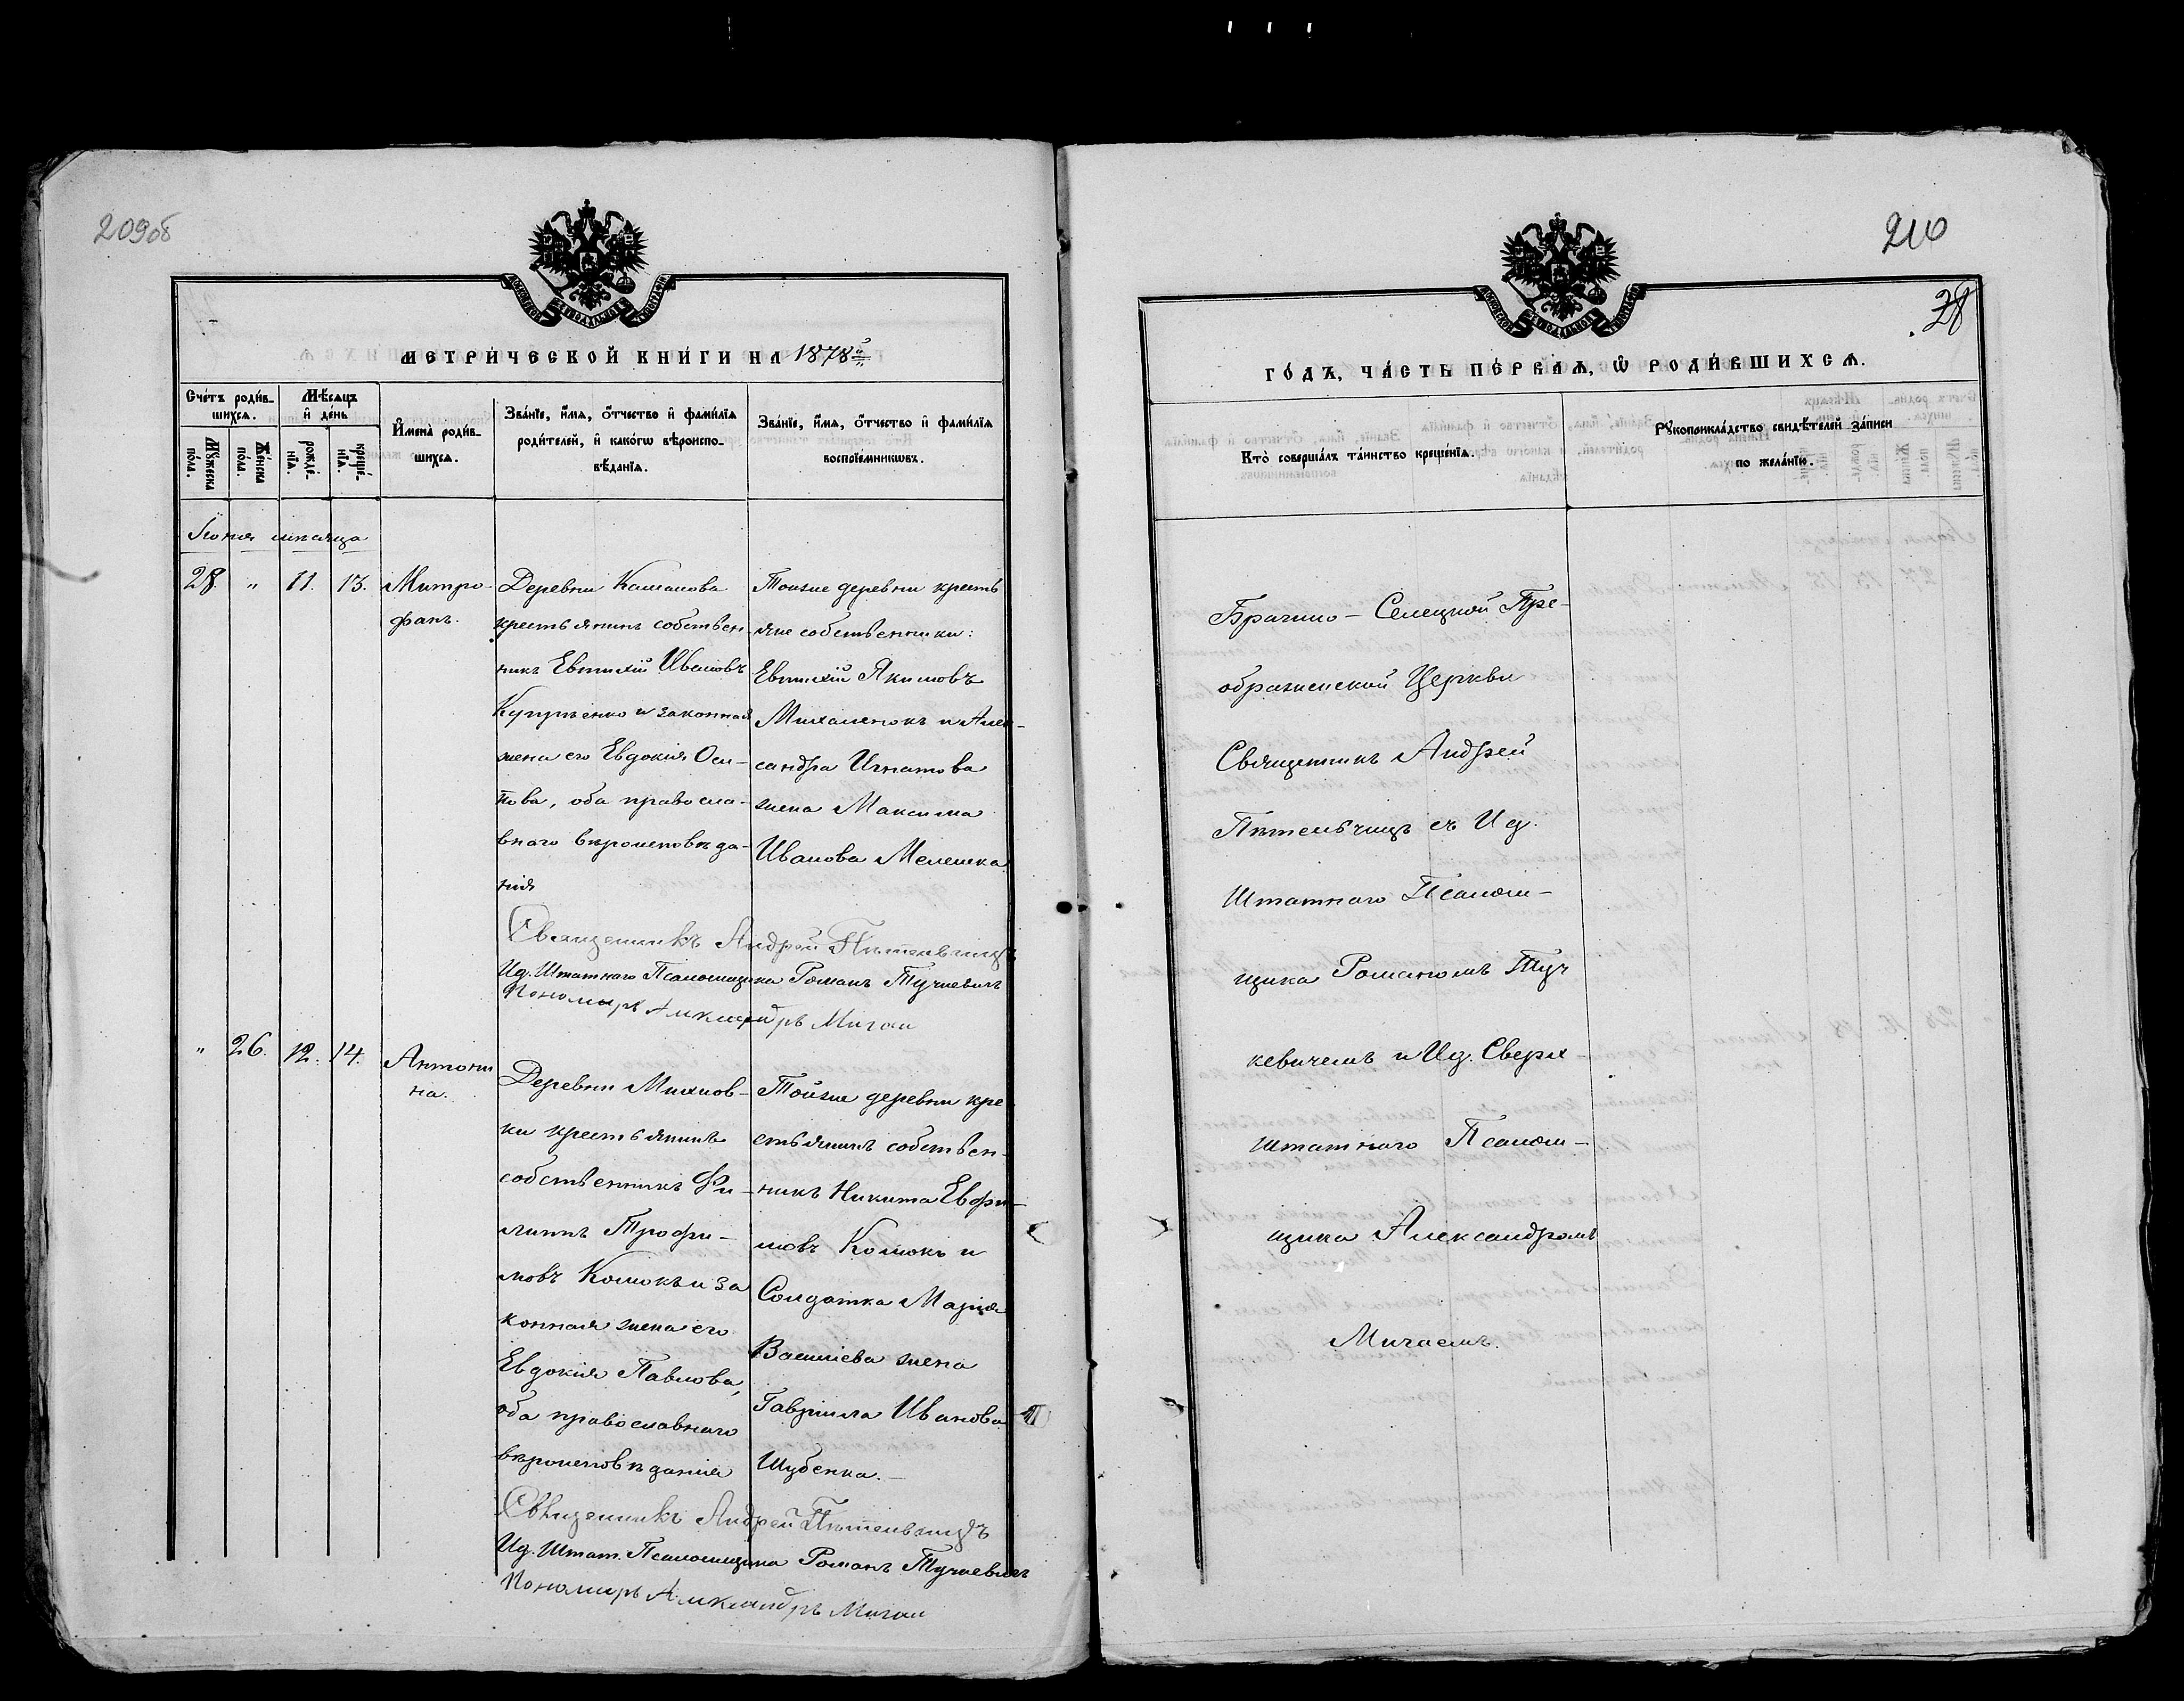 209об
МЕТРИ́ЧЕСКОЙ КНИ́ГИ НА 1878й
Сче́тъ роди́в-
шихся.
Мѣ́сяцъ
и҆ де́нь
И҆мена̀ роди́в-
шихся.
Зва́нїе, и҆́мя, ѻ҆́тчество и҆ фами́лїя
роди́телей, и҆ како́гѡ вѣроиспо-
вѣ́данїя.
Зва́нїе, и҆́мя, ѻ҆́тчество и҆ фами́лїя
воспрїе́мникѡвъ.
Мꙋ́жеска
по́ла.
Же́нска
по́ла.
рожде́-
нїя.
креще́-
нїя.
Іюня мѣсяца
28. " 11. 13.
Митро-
фанъ.
Деревни
крестьянинъ собствен-
никъ Евтихій Ивановъ
и законная
жена его Евдокія Оси-
пова, оба правосла-
внаго вѣроисповѣда-
нія
Тоиже деревни кресть
яне собственники:
Евтихій Якимовъ
Михаленокъ и Алек-
сандра Игнатова
жена Максима
Иванова Мелешка
Священникъ Андрей Пѣтельчицъ
Ид. Штатнаго Псаломщика Романъ Тучкевичъ
Пономарь Александръ Мигаи
" 26. 12. 14.
Антони
на.
Деревни Михнов-
ки крестьянинъ
собственникъ Фи-
липпъ Трофи-
мовъ Комокъ и за
конная жена его
Евдокія Павлова,
оба православнаго
вѣроисповѣданія
Тойже деревни кре
стьянинъ собствен-
никъ Никита Евфи-
мовъ Комокъ и
Солдатка Марія
Василіева жена
Гавріила Иванова
Шубенка.
Священникъ Андрей Пѣтельчицъ
Ид. Штат. Псаломщика Романъ Тучкевичъ
Пономарь Александръ Мигаи
210
28
ГО́ДЪ, ЧА́СТЬ ПЕ́РВАЯ, Ѡ҆ РОДИ́ВШИХСЯ.
Кто̀ соверша́лъ та́инство креще́нїя.
Рꙋкоприкла́дство свидѣ́телей за́писи
по жела́нїю.
Селецкой Пре-
ображенской Церкви
Священникъ Андрей
Пѣтельчицъ съ Ид.
Штатнаго Псалом-
щика Романомъ Туч
кевичемъ и Ид. Сверх
штатнаго Псалом-
щика Александромъ
Мигаемъ.